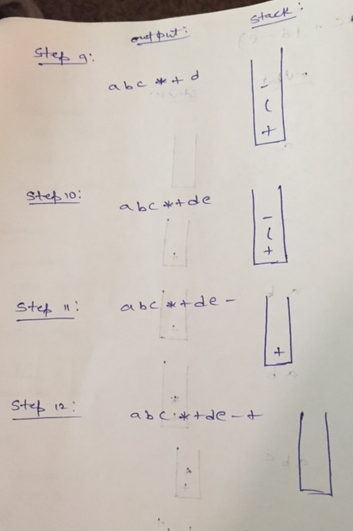 output: stack:
Step 9:
abc*+d
-
(
+
Step 10:
abc*+de
-
(
+
Step 11:
abc*+de-
+
Step 12:
abc*+de-+